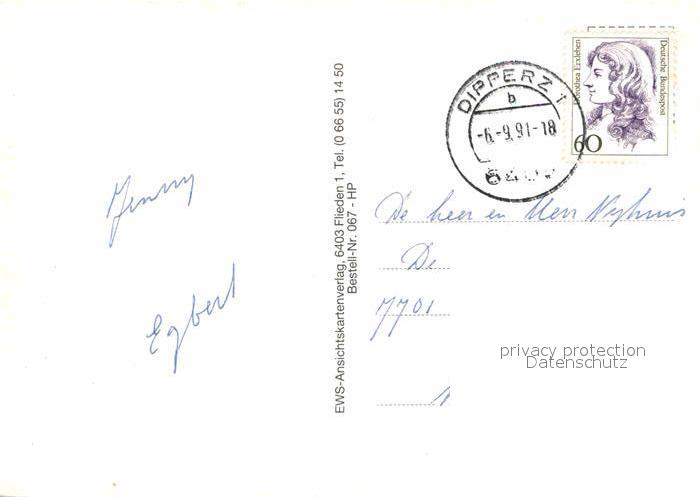 Jenny
Egbert
EWS-Ansichtskartenverlag, 6403 Flieden 1, Tel. (0 66 55) 14 50
Bestell-Nr. 067 - HP
DIPPERZ 1
b
-6.-9.91-18
Dorothea Erxleben
Deutsche Bundespost
60
De heer en
De
7701
privacy protection
Datenschutz